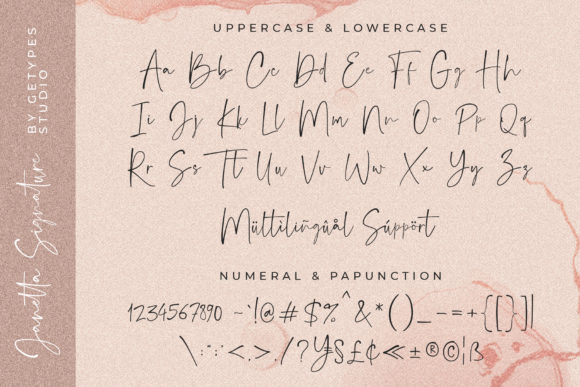 Janetta Signature
BY GETYPES
STUDIO
UPPERCASE & LOWERCASE
Aa Bb Cc Dd Ee Ff Gg Hh
Ii Jj Kk Ll Mm Nn Oo Pp Qq
Rr Ss Tt Uu Vv Ww Xx Yy Zz
Mültiliñgûål Súppört
NUMERAL & PAPUNCTION
1234567890 ~`!@#$%^&*()_-=+{[}]|
\:;"'<,>./?¥§£¢≪±®©¦ß